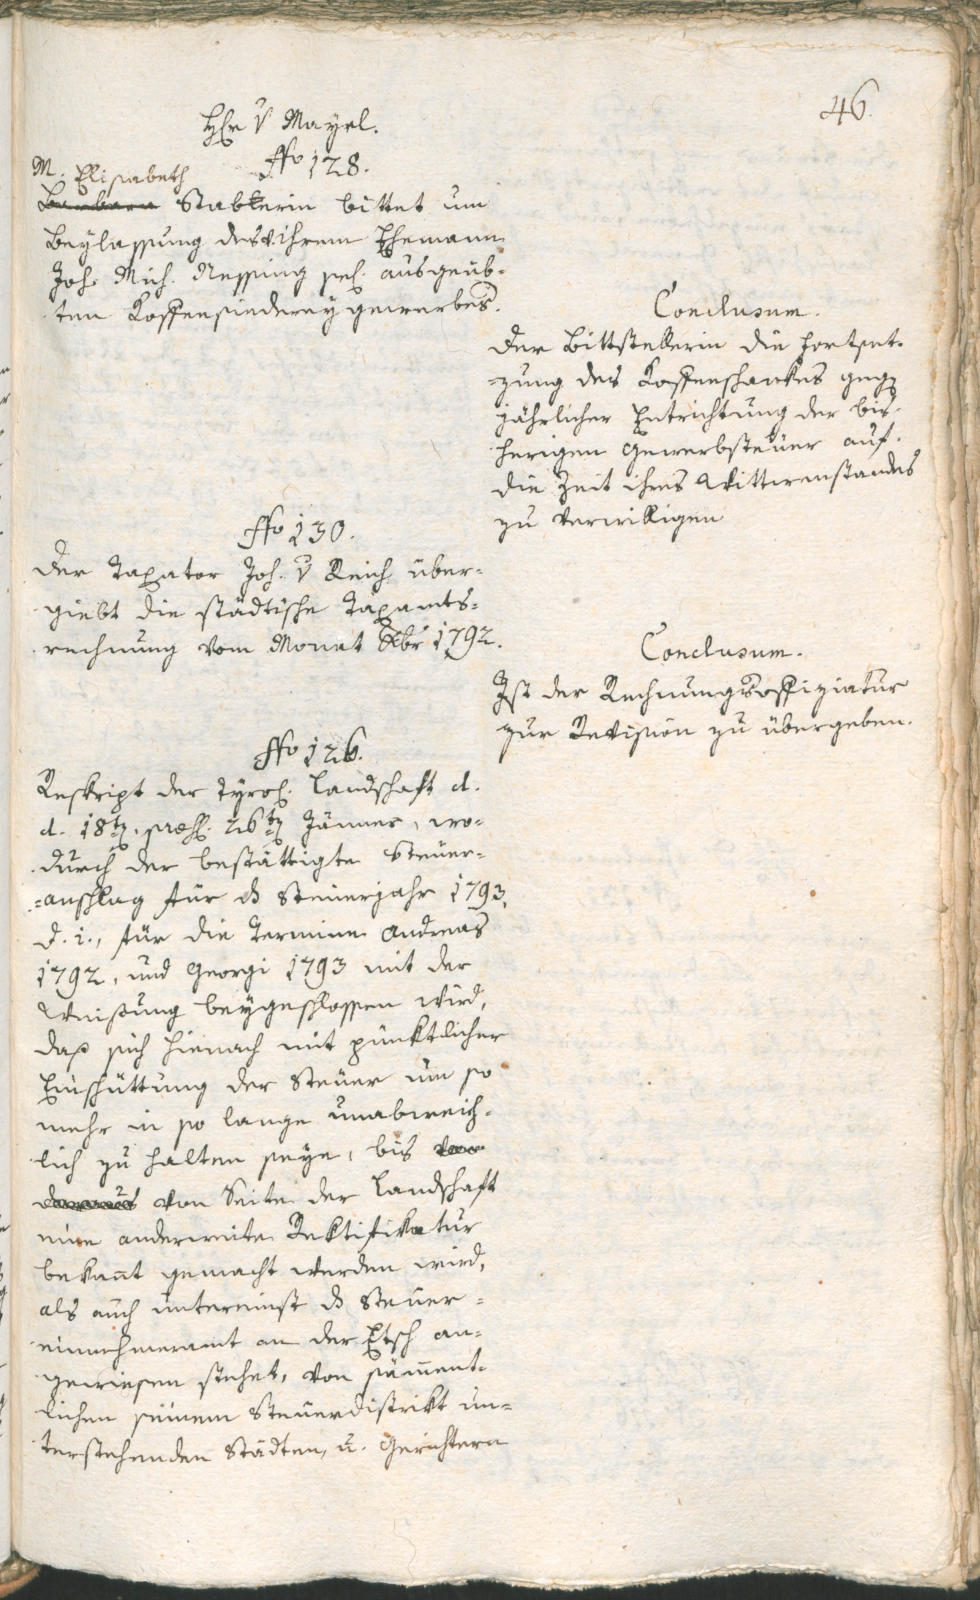 46.
Hr v Mayrl.
No 128.
M. Elisabeth
Barbara Stablerin bittet um
Beylassung des v. ihrem Ehemann
Joh. Mich. Messing sel. ausgeüb-
ten Koffeesiederey gewerbes.
Conclusum.
Der Bittstellerin die Fortset-
zung des Koffeeschankes geg
jährlicher Entrichtung der bis-
herigen Gewerbsteuer auf
die Zeit ihres Wittwenstandes
zu verwilligen
No 130.
Der Taxator Joh. v Reich über-
giebt die städtische Taxamts-
rechnung vom Monat Xbr 1792.
Conclusum.
Ist der Rechnungsoffiziatur
zur Revision zu übergeben.
No 126.
Reskript der Tyrol. Landschaft d.
d. 18t. præs. 26t Jänner, wo-
durch der bestättigte Steuer-
anschlag für ds Steuerjahr 1793,
d. i., für die Termine Andreas
1792, und Georgi 1793 mit der
Weisung beygeschlossen wird,
daß sich hienach mit pünktlicher
Einschüttung der Steuer um so
mehr in so lange unabweich-
lich zu halten seye, bis
von Seite der Landschaft
eine anderweite Rektifikatur
bekañt gemacht werden wird,
als auch untereinst ds Steuer-
einnehmeramt an der Etsch an-
gewiesen stehet, von säm̃ent-
lichen seinem Steuerdistrikt un-
terstehenden Städten, u. Gerichtern